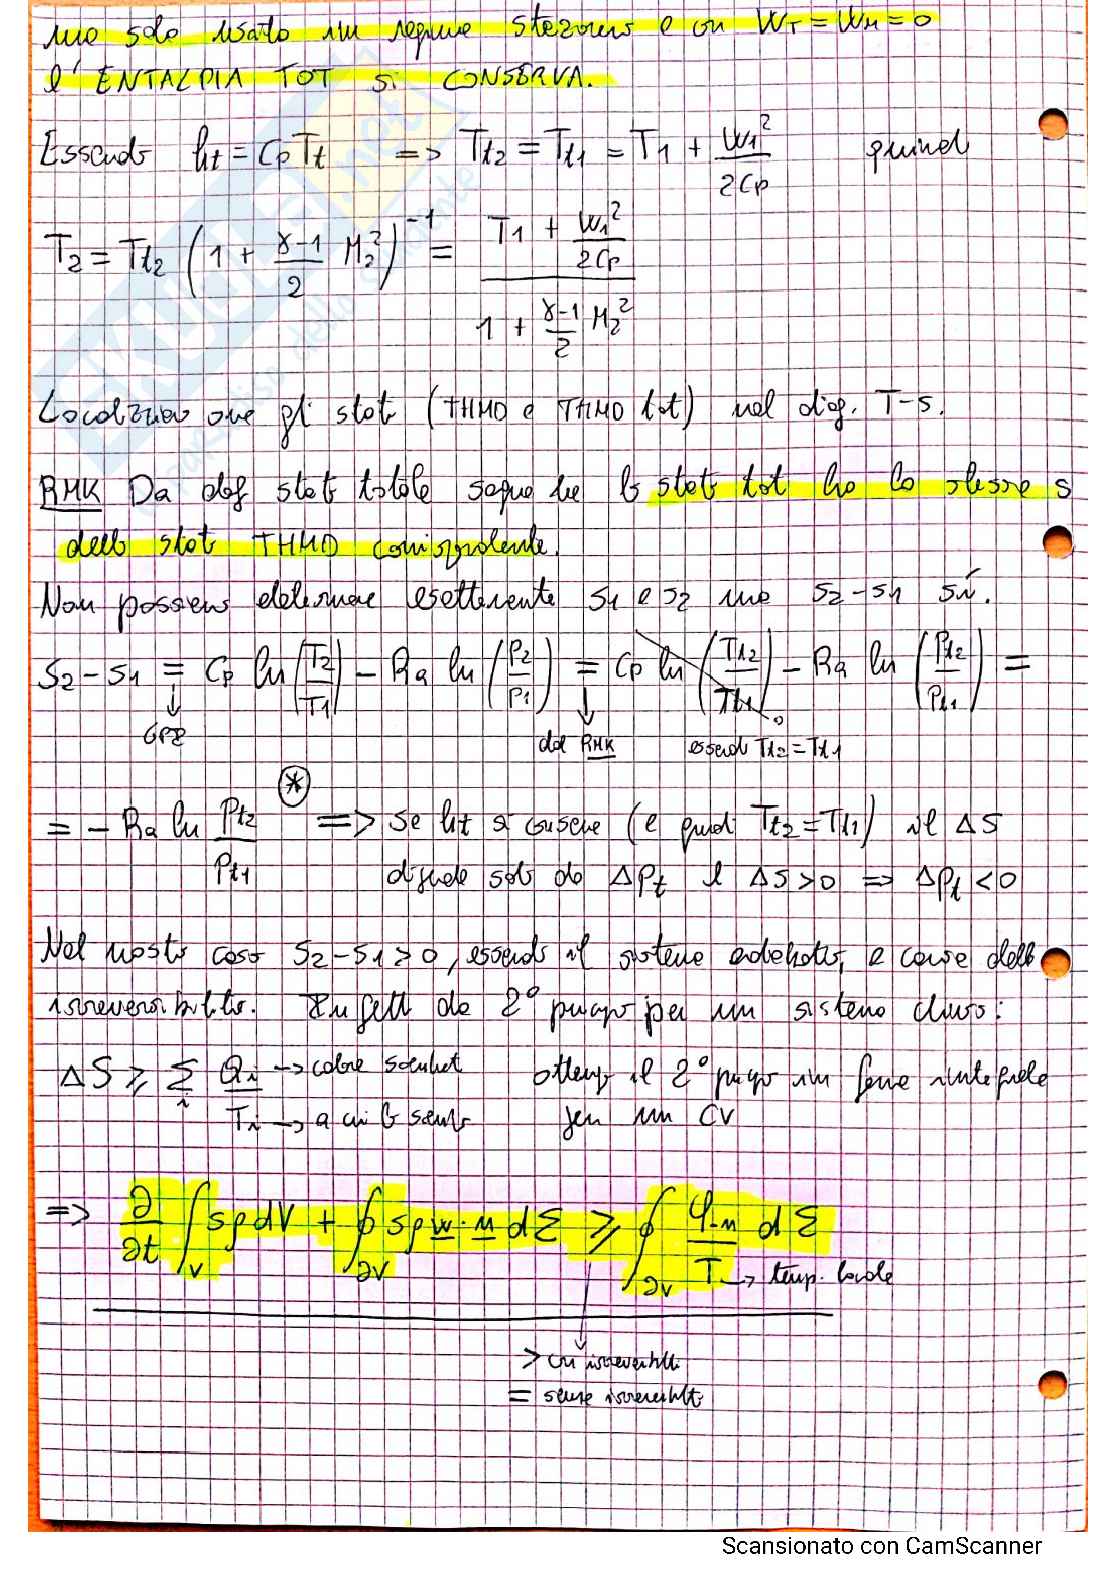 solo usato in regime stazionario e con W_T = W_M = 0
l'ENTALPIA TOT si CONSERVA.
Essendo h_t = C_p T_t => T_t2 = T_t1 = T_1 + w_1² / 2C_p quindi
T_2 = T_t2 (1 + (γ-1)/2 M_2²)^-1 = (T_1 + w_1²/2C_p) / (1 + (γ-1)/2 M_2²)
gli stati (THMD e THMD tot) nel diag. T-s.
RMK Da def stato totale segue che lo stato tot ha la stessa s
dello stato THMD corrispondente.
Non possiamo determinare esattamente s_1 e s_2 ma s_2 - s_1 sì.
s_2 - s_1 = C_p ln(T_2/T_1) - Ra ln(P_2/P_1) = C_p ln(T_t2/T_t1) - Ra ln(P_t2/P_t1) =
dal RMK essendo T_t2 = T_t1
= - Ra ln P_t2/P_t1 (*) => se h_t si conserva (e quindi T_t2 = T_t1) il ΔS
dipende solo da ΔP_t e ΔS > 0 => ΔP_t < 0
Nel nostro caso s_2 - s_1 > 0, essendo il sistema adiabatico, a causa delle
irreversibilità. Infatti da 2° principio per un sistema chiuso:
ΔS ≥ Σ_i Q_i/T_i → calore scambiat ottengo il 2° principio in forma integrale
→ a cui lo scambio per un CV
=> ∂/∂t ∫_V sρdV + ∮_∂V sρ w·n dΣ ≥ ∮_∂V φ·n/T dΣ
→ temp. locale
> con irreversibilità
= senza irreversibilità
Scansionato con CamScanner